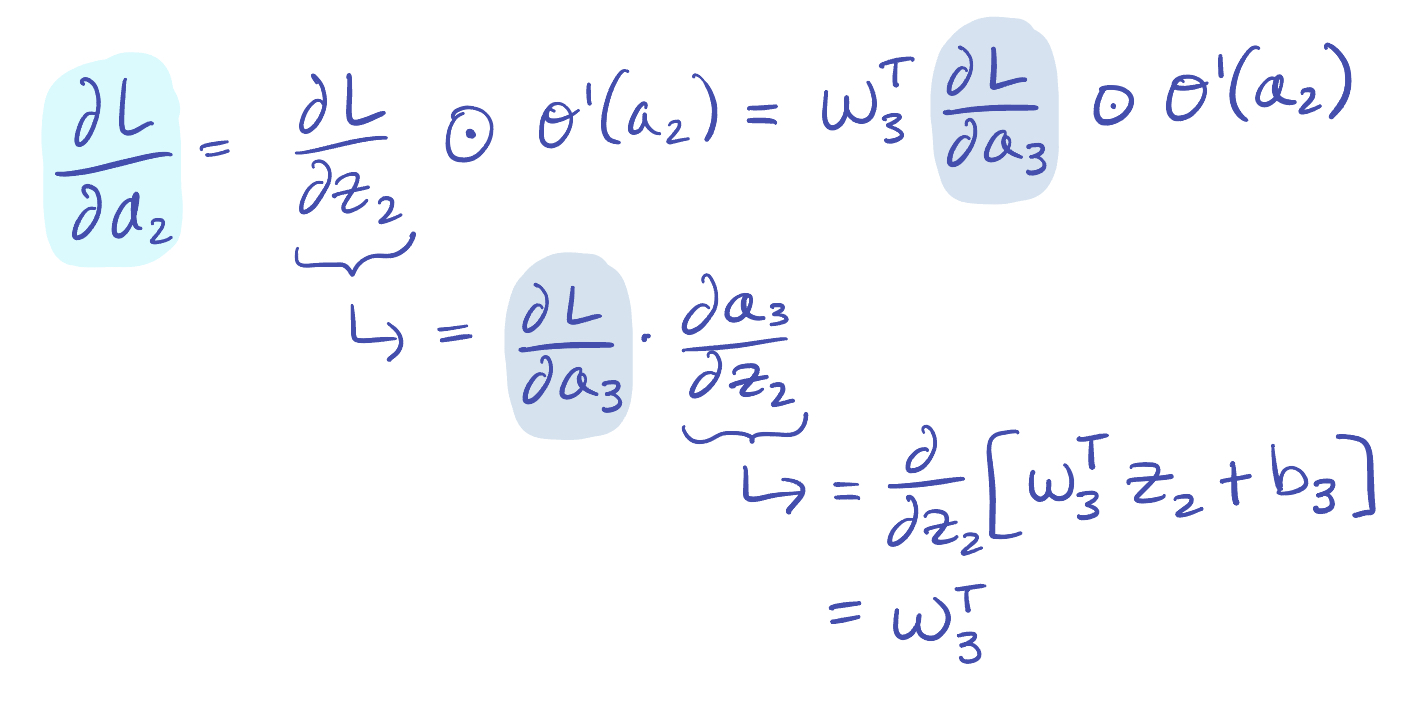 ∂L/∂a₂ = ∂L/∂z₂ ⊙ σ'(a₂) = w₃ᵀ ∂L/∂a₃ ⊙ σ'(a₂)
↳ = ∂L/∂a₃ · ∂a₃/∂z₂
↳ = ∂/∂z₂ [w₃ᵀ z₂ + b₃]
= w₃ᵀ